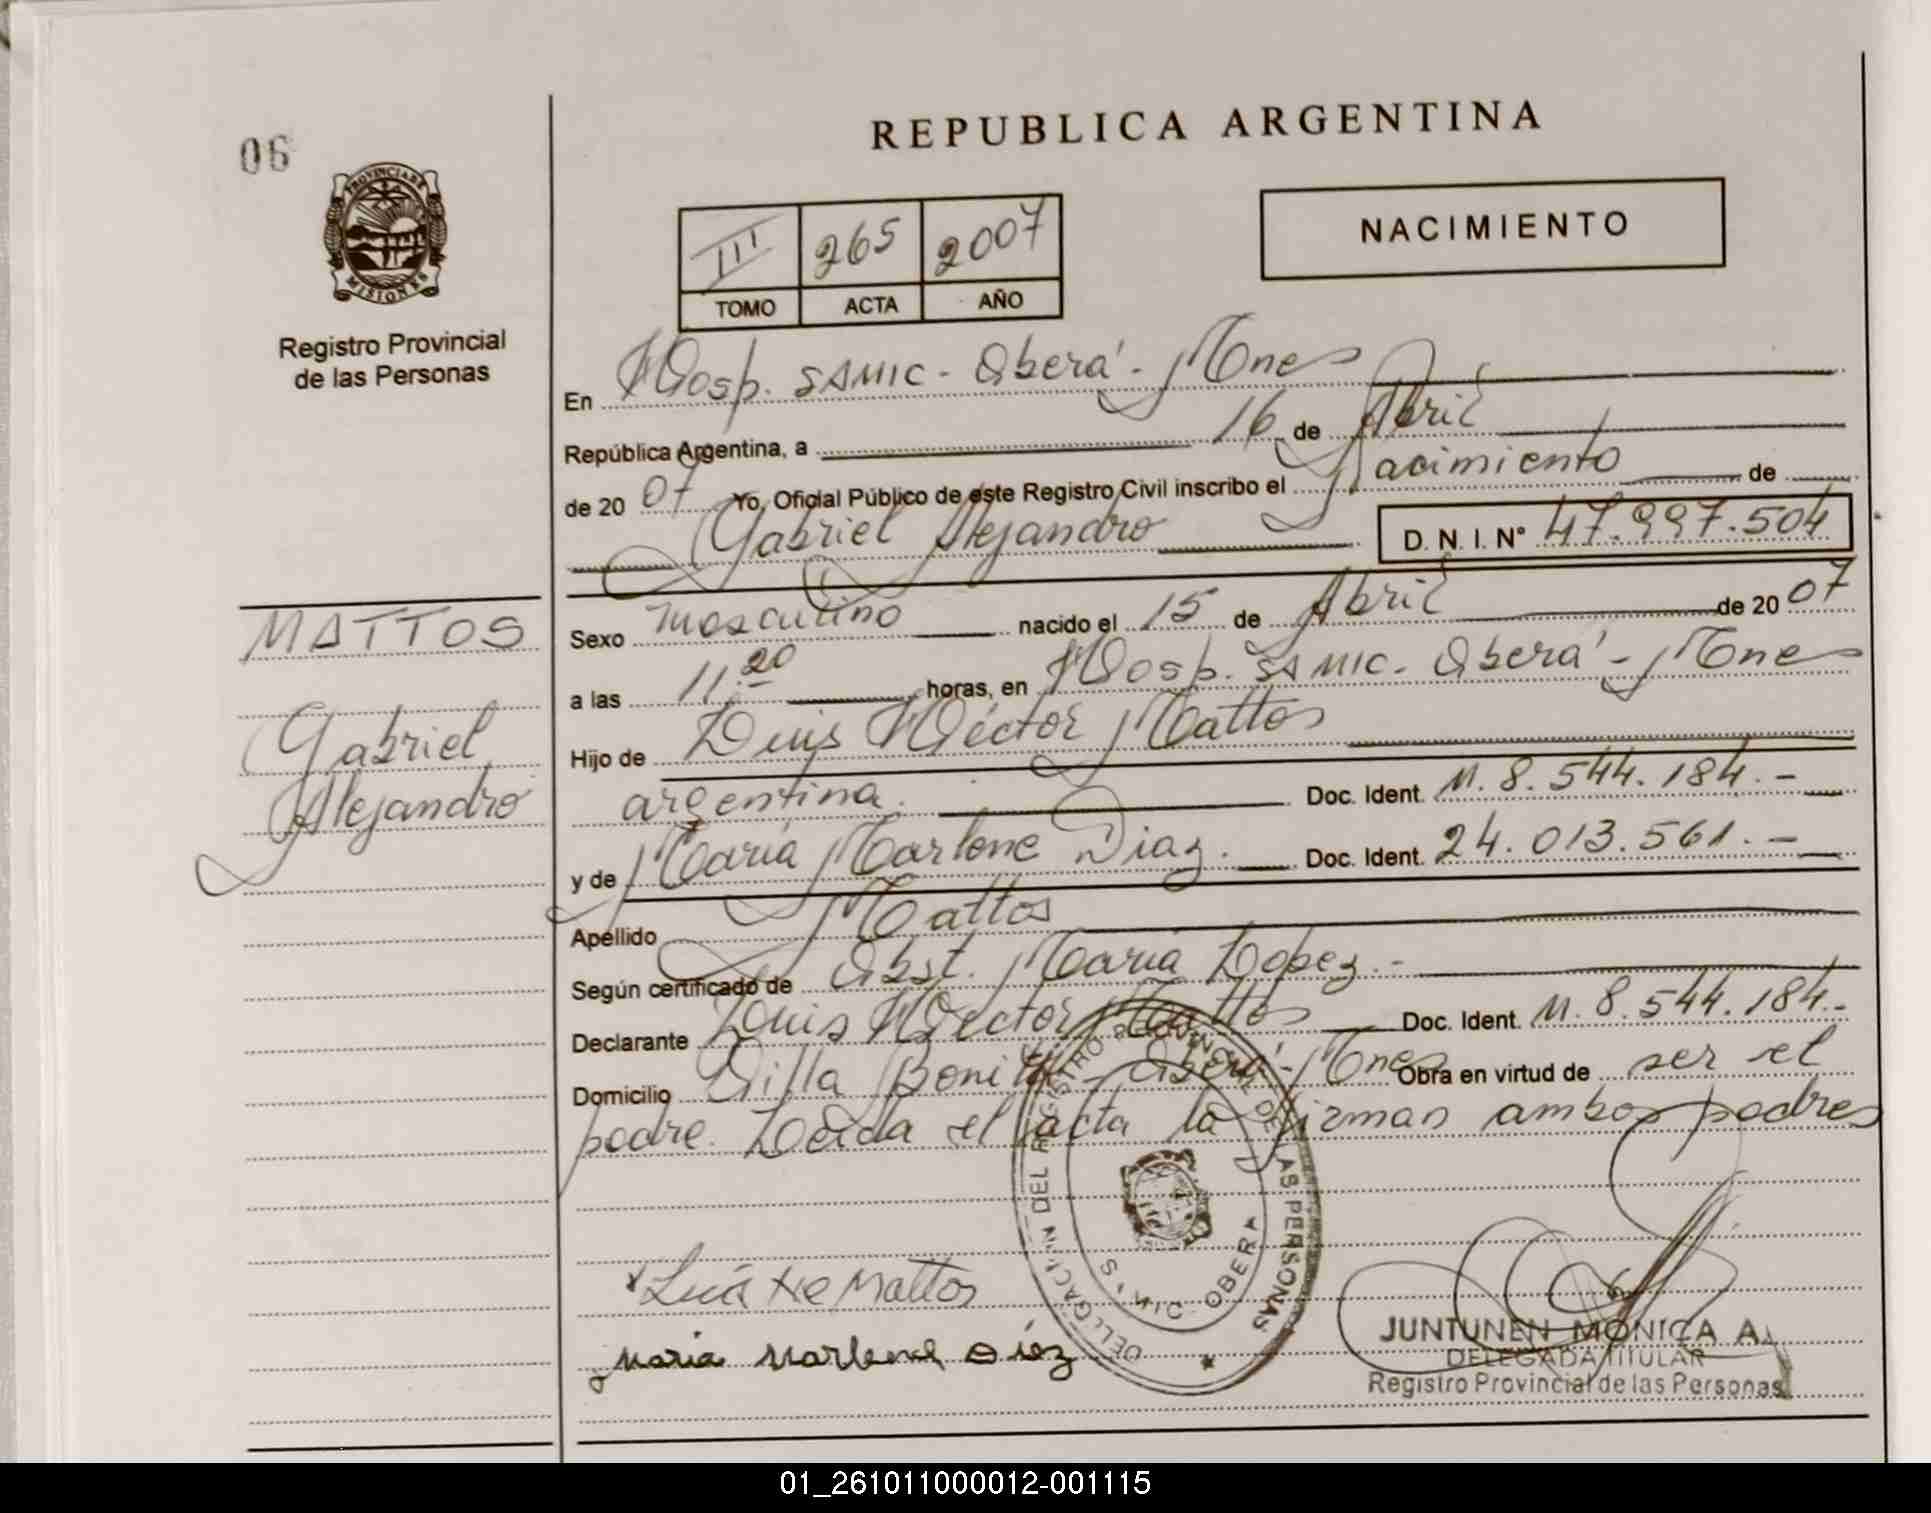 REPUBLICA ARGENTINA
06
PROVINCIA DE
MISIONES
Registro Provincial
de las Personas
III 265 2007
TOMO ACTA AÑO
NACIMIENTO
En Hosp. SAMIC - Oberá - Mnes
República Argentina, a 16 de Abril
de 20 07 Yo, Oficial Público de este Registro Civil inscribo el Nacimiento de
Gabriel Alejandro D. N. I. Nº 47.997.504
MATTOS
Gabriel
Alejandro
Sexo masculino nacido el 15 de Abril de 20 07
a las 11.20 horas, en Hosp. SAMIC - Oberá - Mnes
Hijo de Luis Héctor Mattos
argentina. Doc. Ident. M. 8.544.184.-
y de María Marlene Diaz. Doc. Ident. 24.013.561.-
Apellido Mattos
Según certificado de Obst. María Lopez.-
Declarante Luis Héctor Mattos Doc. Ident. M. 8.544.184.-
Domicilio Villa Bonita - Oberá - Mnes Obra en virtud de ser el
padre. Leída el acta la firman ambos padres
DELEGACION DEL REGISTRO PROVINCIAL DE LAS PERSONAS
OBERA
Mattos
Maria Marlene Diaz
JUNTUNEN MONICA A.
DELEGADA TITULAR
Registro Provincial de las Personas
01_261011000012-001115